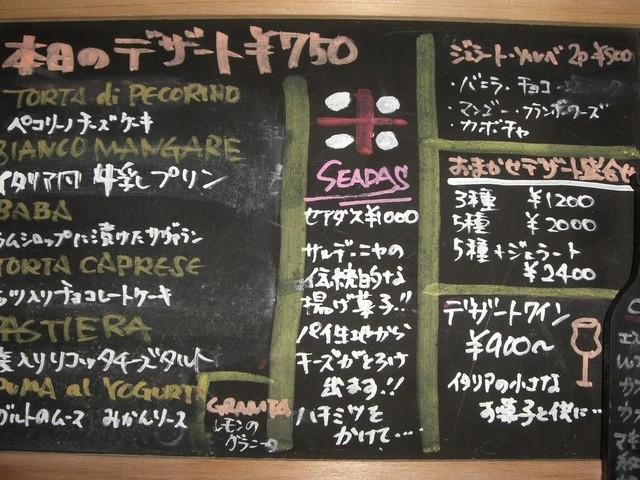 本日のデザート ¥750
TORTA di PECORINO
ペコリーノチーズケーキ
BIANCO MANGARE
イタリア風 牛乳プリン
BABA
ラムシロップに漬けたサヴァラン
TORTA CAPRESE
入りチョコレートケーキ
PASTIERA
麦入りリコッタチーズタルト
al YOGURT
グルトのムース みかんソース
GRANITA
レモンの
グラニータ
SEADAS
セアダス¥1000
サルデーニャの
伝統的な
揚げ菓子!!
パイ生地から
チーズがとろけ
出ます!!
ハチミツを
かけて…
ジェラート・ソルベ 2P ¥500
・バニラ・チョコ・
・マンゴー・フランボワーズ
・カボチャ
おまかせデザート盛合せ
3種 ¥1200
5種 ¥2000
5種+ジェラート
¥2400
デザートワイン
¥900〜
イタリアの小さな
お菓子と供に…